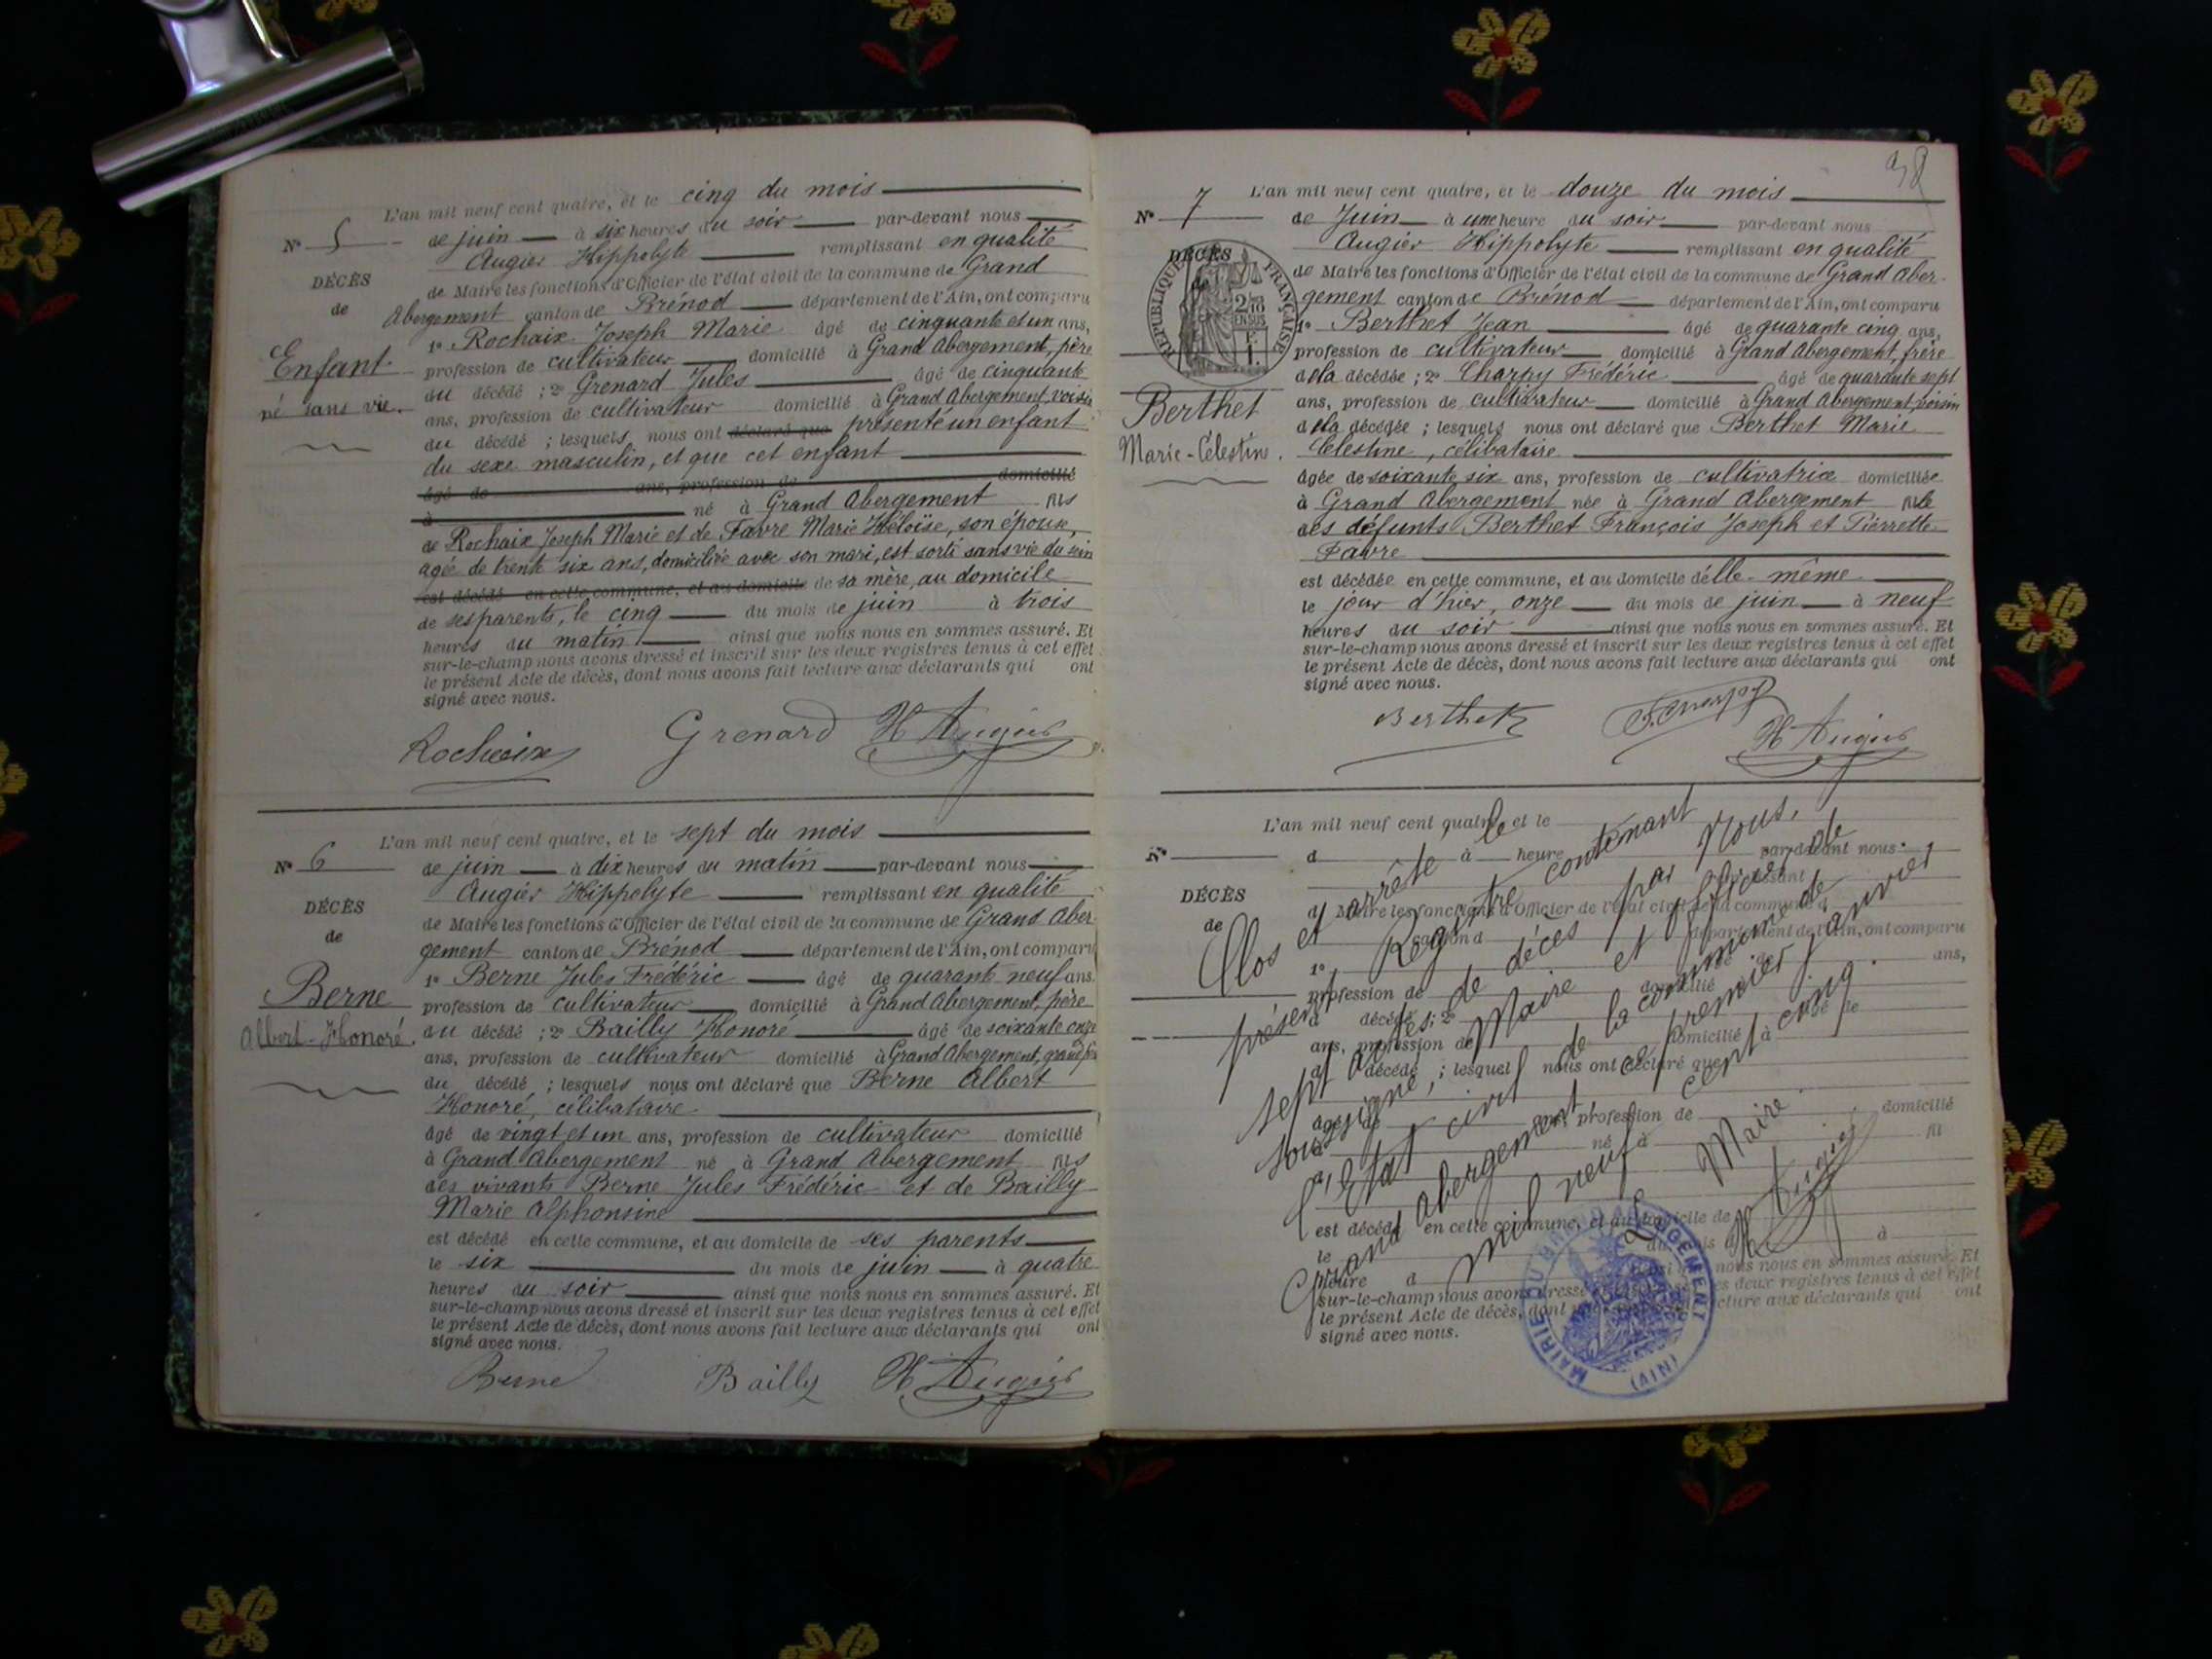 L'an mil neuf cent quatre, et le cinq du mois
N° 5 de juin à six heures du soir par-devant nous
Augier Hippolyte remplissant en qualité
DÉCÈS de Maire les fonctions d'Officier de l'état civil de la commune de Grand
de Abergement canton de Brénod département de l'Ain, ont comparu
1° Rochaix Joseph Marie âgé de cinquante et un ans,
Enfant profession de cultivateur domicilié à Grand Abergement, père
né sans vie. du décédé ; 2° Grenard Jules âgé de cinquante
ans, profession de cultivateur domicilié à Grand Abergement, voisin
du décédé ; lesquels nous ont déclaré que présenté un enfant
du sexe masculin, et que cet enfant
âgé de ans, profession de domicilié
à né à Grand Abergement fils
de Rochaix Joseph Marie et de Favre Marie Héloïse, son épouse,
agée de trente six ans, domiciliée avec son mari, est sorti sans vie du sein
est décédé en cette commune, et au domicile de sa mère, au domicile
de ses parents, le cinq du mois de juin à trois
heures du matin ainsi que nous nous en sommes assuré. Et
sur-le-champ nous avons dressé et inscrit sur les deux registres tenus à cet effet
le présent Acte de décès, dont nous avons fait lecture aux déclarants qui ont
signé avec nous.
Rochaix Grenard H Augier
L'an mil neuf cent quatre, et le sept du mois
N° 6 de juin à dix heures du matin par-devant nous
Augier Hippolyte remplissant en qualité
DÉCÈS de Maire les fonctions d'Officier de l'état civil de la commune de Grand Aber-
de gement canton de Brénod département de l'Ain, ont comparu
1° Berne Jules Frédéric âgé de quarante neuf ans.
Berne profession de cultivateur domicilié à Grand Abergement, père
Albert-Honoré. du décédé ; 2° Bailly Honoré âgé de soixante onze
ans, profession de cultivateur domicilié à Grand Abergement, grand
du décédé ; lesquels nous ont déclaré que Berne Albert
Honoré, célibataire
âgé de vingt et un ans, profession de cultivateur domicilié
à Grand Abergement né à Grand Abergement fils
des vivants Berne Jules Frédéric et de Bailly
Marie Alphonsine
est décédé en cette commune, et au domicile de ses parents
le six du mois de juin à quatre
heures du soir ainsi que nous nous en sommes assuré. Et
sur-le-champ nous avons dressé et inscrit sur les deux registres tenus à cet effet
le présent Acte de décès, dont nous avons fait lecture aux déclarants qui ont
signé avec nous.
Berne Bailly H Augier
L'an mil neuf cent quatre, et le douze du mois
N° 7 de Juin à une heure du soir par-devant nous
Augier Hippolyte remplissant en qualité
DÉCÈS de Maire les fonctions d'Officier de l'état civil de la commune de Grand Aber-
RÉPUBLIQUE FRANÇAISE
2/10 EN SUS
gement canton de Brénod département de l'Ain, ont comparu
1° Berthet Jean âgé de quarante cinq ans,
profession de cultivateur domicilié à Grand Abergement, frère
de la décédée ; 2° Charpy Frédéric âgé de quarante sept
Berthet ans, profession de cultivateur domicilié à Grand Abergement, voisin
de la décédée ; lesquels nous ont déclaré que Berthet Marie
Marie-Célestine. Célestine, célibataire
âgée de soixante six ans, profession de cultivatrice domiciliée
à Grand Abergement née à Grand Abergement fille
des défunts Berthet François Joseph et Pierrette
Favre
est décédée en cette commune, et au domicile d'elle-même
le jour d'hier, onze du mois de juin à neuf
heures du soir ainsi que nous nous en sommes assuré. Et
sur-le-champ nous avons dressé et inscrit sur les deux registres tenus à cet effet
le présent Acte de décès, dont nous avons fait lecture aux déclarants qui ont
signé avec nous.
Berthet F. Charpy H Augier
L'an mil neuf cent quatre, et le
N° d à heure par-devant nous
remplissant
DÉCÈS d Maire les fonctions d'Officier de l'état civil de la commune d
de canton d département de l'Ain, ont comparu
1° âgé de ans,
profession de domicilié
d décédé ; 2° âgé de
ans, profession de domicilié à
d décédé ; lesquel nous ont déclaré que
âgé de ans, profession de domicilié
à né à fil
est décédé en cette commune, et au domicile de
le du mois d à
heure d ainsi que nous nous en sommes assuré. Et
sur-le-champ nous avons dressé les deux registres tenus à cet effet
le présent Acte de décès, dont lecture aux déclarants qui ont
signé avec nous.
Clos et arrêté le
présent Registre contenant
sept actes de décès par Nous,
soussigné, Maire et officier de
l'Etat civil de la commune de
Grand Abergement, ce premier janvier
mil neuf cent cinq.
Le Maire
H Augier
MAIRIE DU GRAND ABERGEMENT
(AIN)